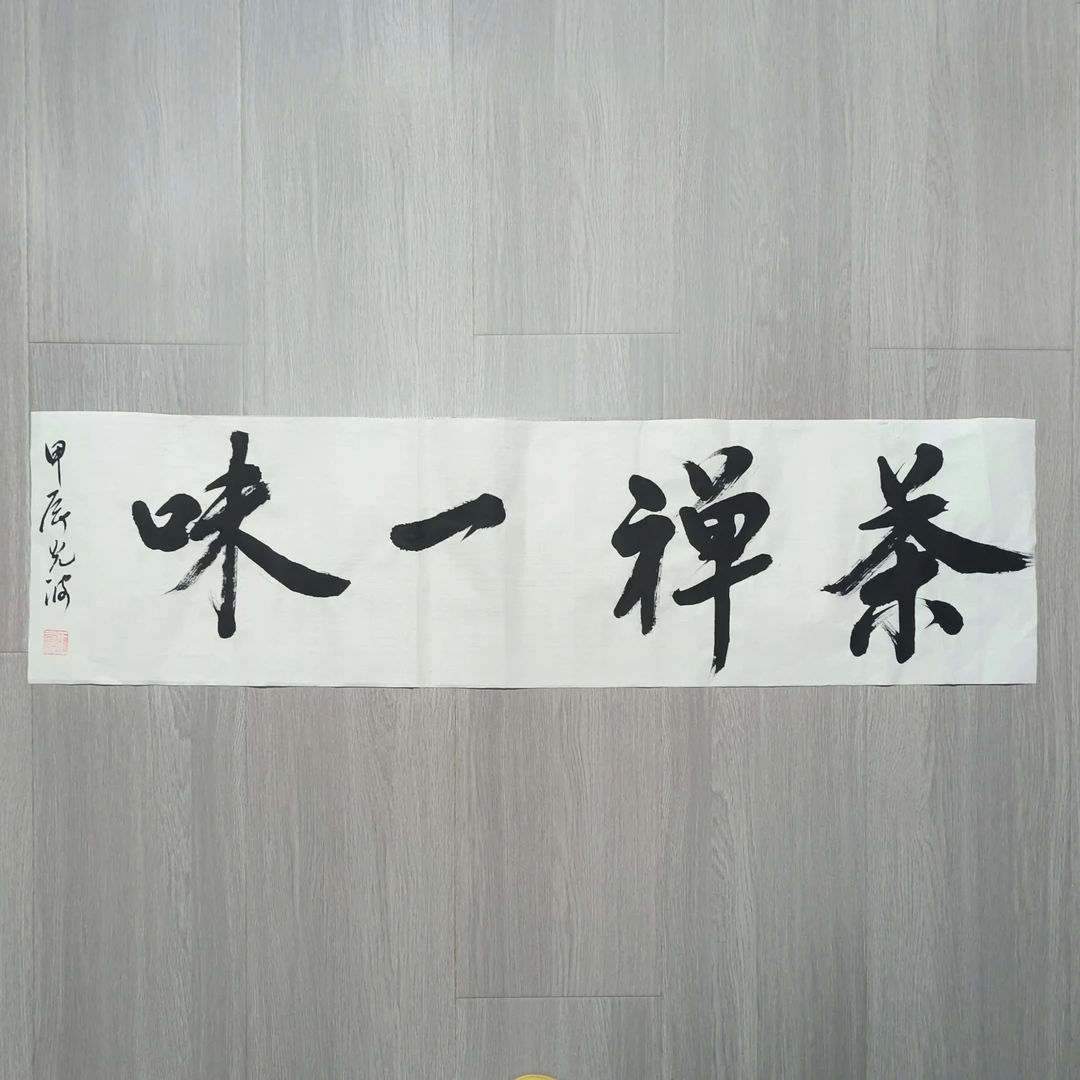 茶禅一味
甲辰光波